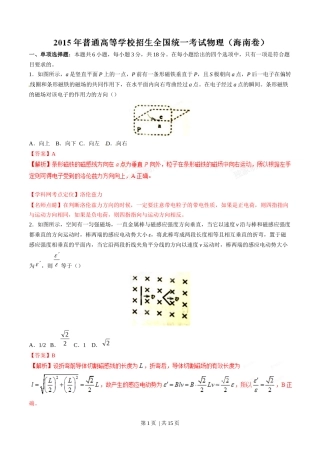 2015年普通高等学校招生全国统一考试物理(海南卷)
一、单项选择题:本题共6小题,每小题3分,共18分。在每小题给出的四个选项中,只有一项是符合题
要求的。
1.如图所示,a是竖直平面P上的一点,P前有一条形磁铁垂直于P,且S极朝向a点,P后一电子在偏转
线圈和条形磁铁的磁场的共同作用下,在水平面内向右弯曲经过a点。在电子经过a点的瞬间。条形磁铁
的磁场对该电子的作用力的方向()
P
a
A.向上 B.向下 C.向左 D.向右
【答案】A
【解析】条形磁铁的磁感线方向在a点为垂直P向外,粒子在条形磁铁的磁场中向右运动,所以根
据左手定则可得电子受到的洛伦兹力方向向上,A正确.
【学科网考点定位】洛伦兹力
【名师点睛】在判断洛伦兹力方向的时候,一定要注意带电粒子的带电性质,如果是正电荷,则四指指向
与运动方向相同,如果是负电荷,则四指指向与运动方向相反。
2.如图所示,空间有一匀强磁场,一直金属棒与磁感应强度方向垂直,当它以速度v沿与棒和磁感应强度
都垂直的方向运动时,棒两端的感应电动势大小ε,将此棒弯成两段长度相等且相互垂直的折弯,置于磁
感应强度相垂直的平面内,当它沿两段折线夹角平分线的方向以速度v运动时,棒两端的感应电动势大小
为ε′,则ε′/ε等于()
v v
A.1/2 B.√2/2 C.1 D.√2
【答案】B
【解析】设折弯前导体切割磁感线的长度为L,折弯后,导体切割磁场的有效长度为
l=√((L/2)²+(L/2)²)=√2/2L,故产生的感应电动势为ε′=Blv=B·√2/2Lv=√2/2ε,所以ε′/ε=√2/2,B正
确。
第 1 页 | 共 15 页